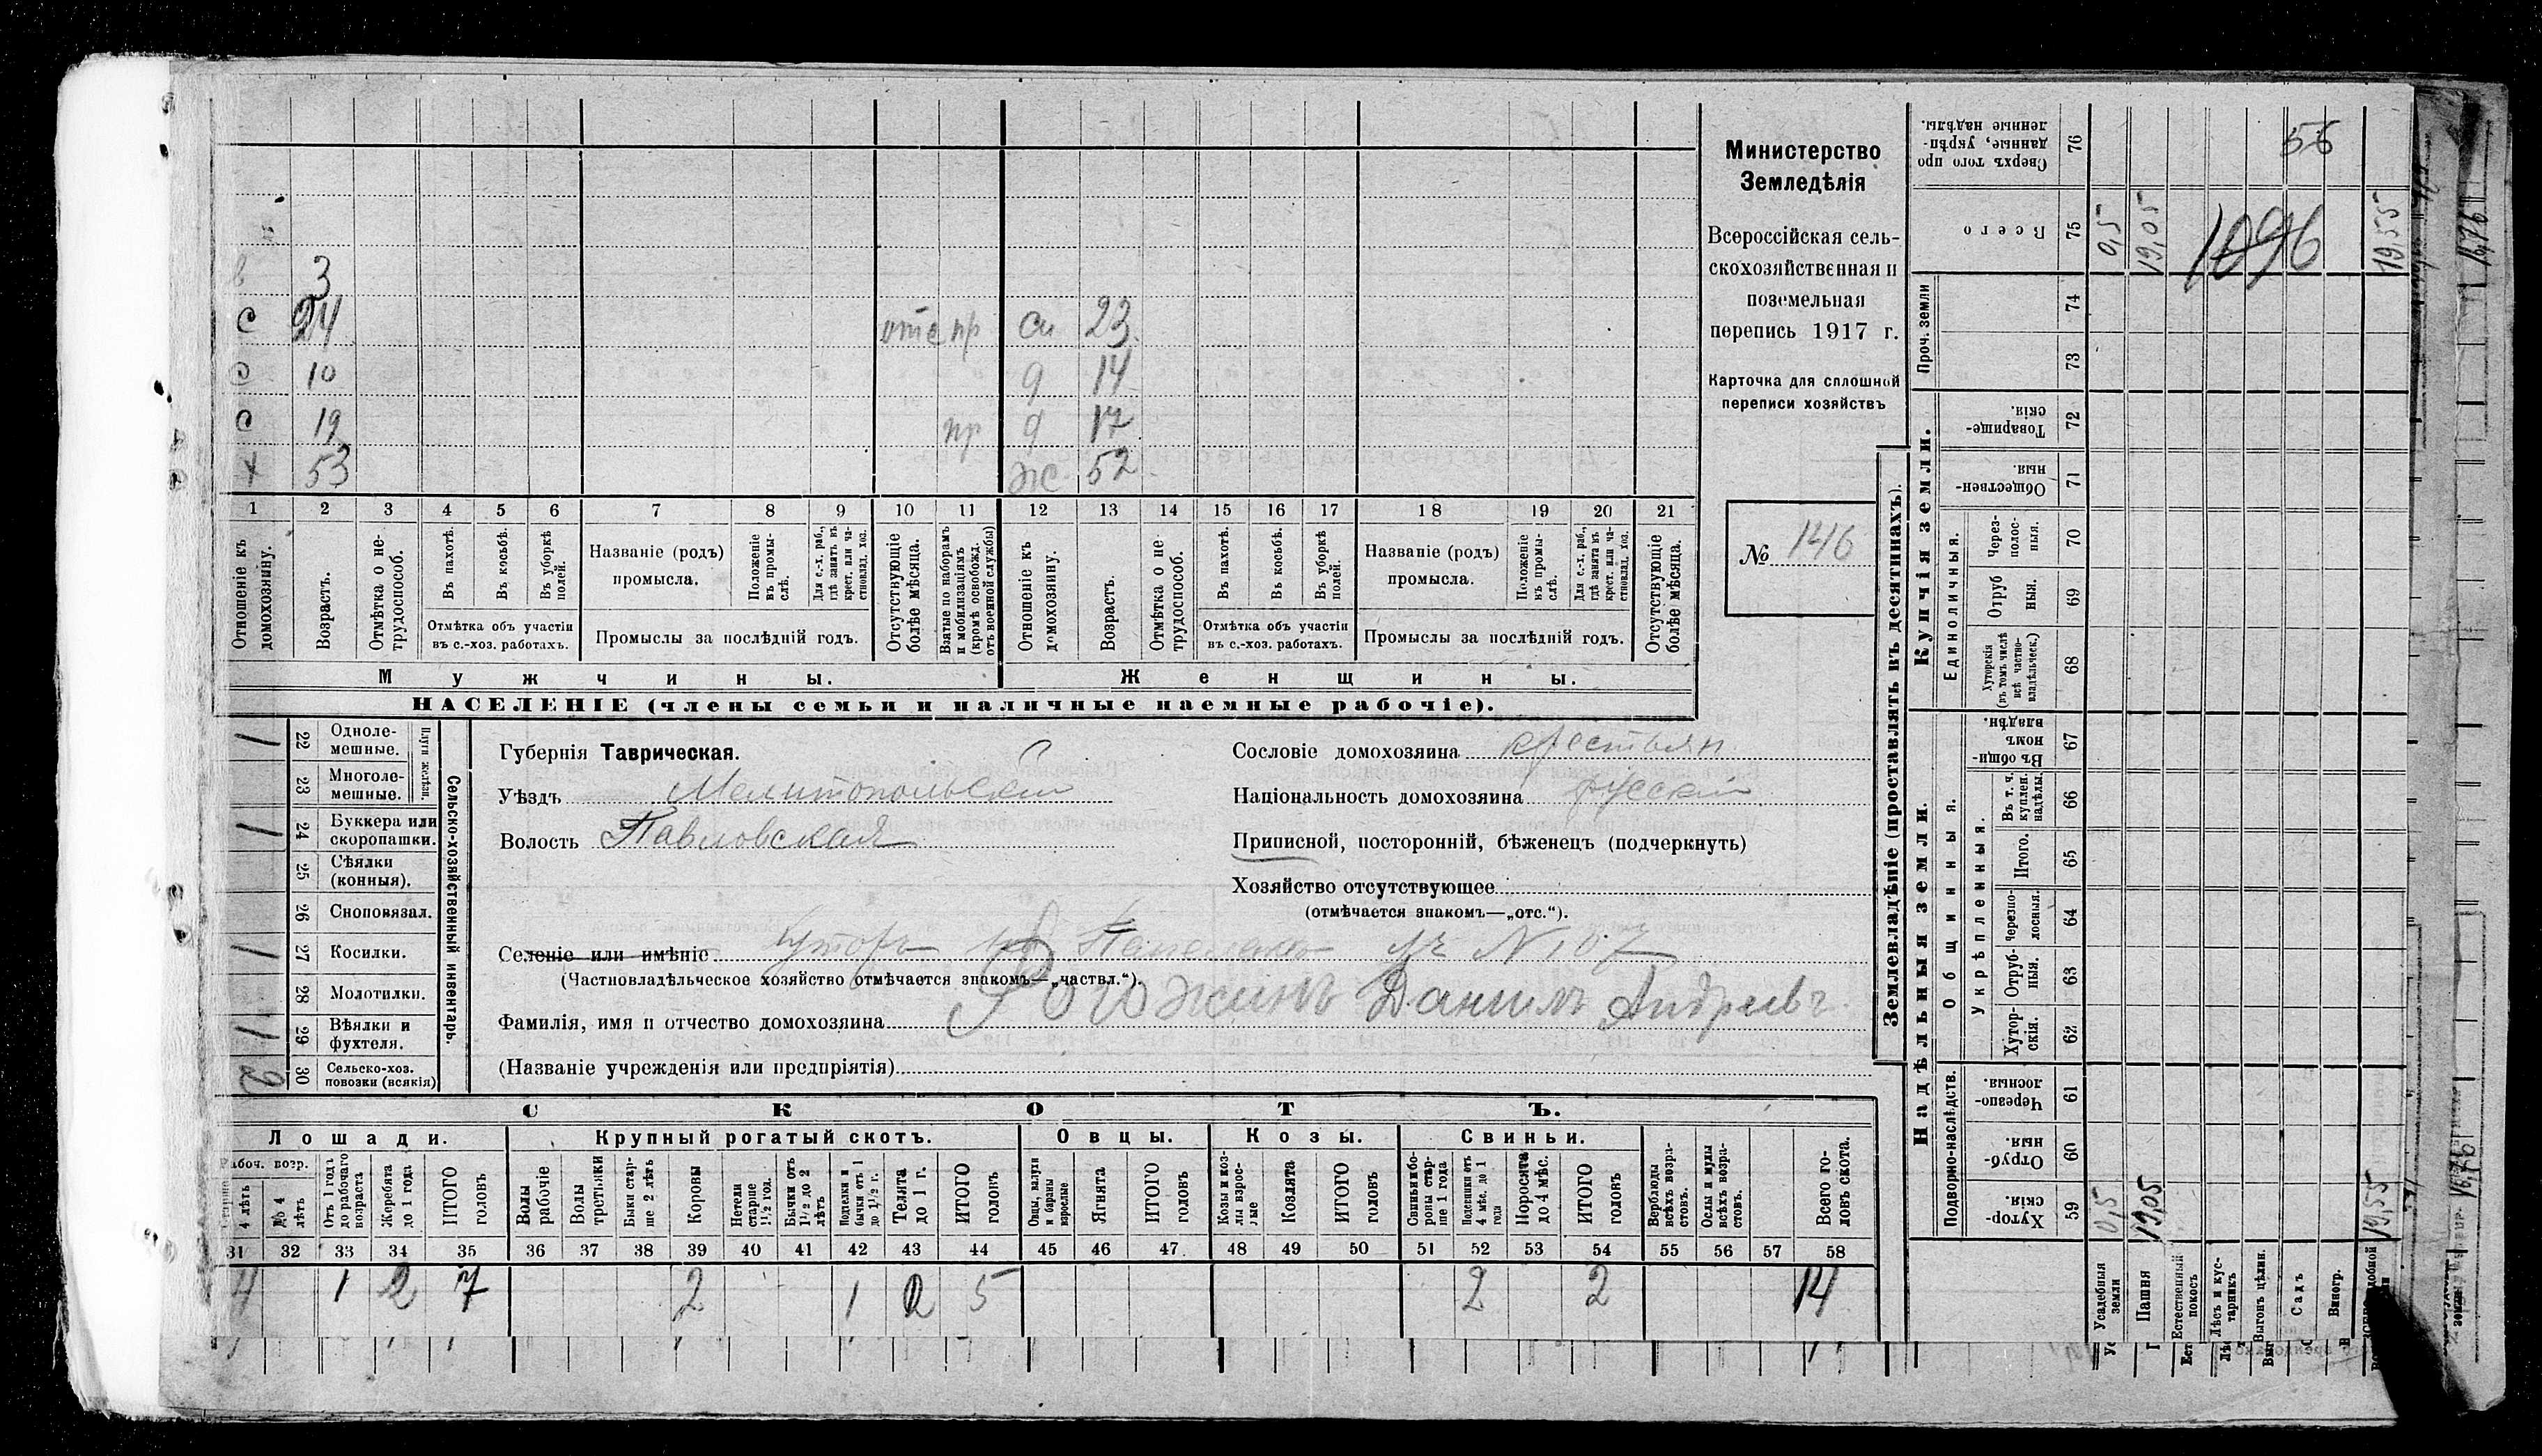 3
с 24 отс пр сн 23
с 10 д 14
с 19 пр д 17
х 53 ж 52
1 2 3 4 5 6 7 8 9 10 11 12 13 14 15 16 17 18 19 20 21
Отношеніе къ домохозяину.
Возрастъ.
Отмѣтка о нетрудоспособ.
Въ пахотѣ.
Въ косьбѣ.
Въ уборкѣ полей.
Отмѣтка объ участіи
въ с.-хоз. работахъ.
Названіе (родъ)
промысла.
Положеніе въ промыслѣ.
Для с.-х. раб., гдѣ занятъ въ крест. или частновлад. хоз.
Промыслы за послѣдній годъ.
Отсутствующіе болѣе мѣсяца.
Взятые по наборамъ и мобилизаціямъ (кромѣ освобожд. отъ военной службы)
Отношеніе къ домохозяину.
Возрастъ.
Отмѣтка о нетрудоспособ.
Въ пахотѣ.
Въ косьбѣ.
Въ уборкѣ полей.
Отмѣтка объ участіи
въ с.-хоз. работахъ.
Названіе (родъ)
промысла.
Положеніе въ промыслѣ.
Для с.-х. раб., гдѣ занята въ крест. или частновлад. хоз.
Промыслы за послѣдній годъ.
Отсутствующіе болѣе мѣсяца.
Мужчины. Женщины.
НАСЕЛЕНІЕ (члены семьи и наличные наемные рабочіе).
Министерство
Земледѣлія
Всероссійская сель-
скохозяйственная и
поземельная
перепись 1917 г.
Карточка для сплошной
переписи хозяйствъ
№ 146
Сельско-хозяйственный инвентарь.
Плуги желѣзн.
1 22 Одноле-
мешные.
23 Многоле-
мешные.
1 24 Буккера или
скоропашки.
25 Сѣялки
(конныя).
26 Сноповязал.
1 27 Косилки.
28 Молотилки.
1 29 Вѣялки и
фухтеля.
2 30 Сельско-хоз.
повозки (всякія)
Губернія Таврическая.
Уѣздъ Мелитопольскій
Волость Павловская
Сословіе домохозяина крестьян.
Національность домохозяина русскій
Приписной, посторонній, бѣженец (подчеркнуть)
Хозяйство отсутствующее
(отмѣчается знакомъ—„отс.“).
Селеніе или имѣніе Хуторъ № 107
(Частновладѣльческое хозяйство отмѣчается знакомъ—„частвл.“).
Фамилія, имя и отчество домохозяина Рогожинъ Данилъ Андреевъ
(Названіе учрежденія или предпріятія)
СКОТЪ.
Лошади. Крупный рогатый скотъ. Овцы. Козы. Свиньи.
Рабоч. возр.
4 лѣтъ
До 4 лѣтъ
Отъ 1 годъ до рабочаго возраста
Жеребята до 1 года
ИТОГО головъ
Волы рабочіе
Волы третьяки
Быки старше 2 лѣтъ
Коровы
Нетели старше 1½ год.
Бычки отъ 1½ до 2 лѣтъ
Подтелки и бычки отъ 1 до 1½ г.
Телята до 1 г.
ИТОГО головъ
Овцы, валухи и бараны взрослые
Ягнята
ИТОГО головъ
Козы и козлы взрослые
Козлята
ИТОГО головъ
Свиньи и бороны старше 1 года
Подсвинки отъ 4 мѣс. до 1 года
Поросята до 4 мѣс.
ИТОГО головъ
Верблюды всѣхъ возрастовъ.
Ослы и мулы всѣхъ возрастовъ.
Всего головъ скота.
31 32 33 34 35 36 37 38 39 40 41 42 43 44 45 46 47 48 49 50 51 52 53 54 55 56 57 58
4 1 2 7 2 1 2 5 2 2 14
Землевладѣніе (проставлять въ десятинахъ).
Сверхъ того проданные, укрѣпленные надѣлы. 76 56
Всего 75 0,5 19,05 1096 19,55
Проч. земли 74 73
Купчія земли.
Товарищескія. 72
Общественныя. 71
Единоличныя.
Черезполосныя. 70
Отрубныя. 69
Хуторскія (въ томъ числѣ всѣ частновладѣльческ.) 68
Надѣльныя земли.
Общинныя.
Въ общинномъ владѣн. 67
Укрѣпленныя.
Въ т. ч. куплен. надѣлы. 66
Итого. 65
Черезполосныя. 64
Отрубныя. 63
Хуторскія. 62
Подворно-наслѣдств.
Черезполосныя. 61
Отрубныя. 60
Хуторскія. 59 0,5 19,05 19,55
Усадебныя земли
Пашня
Естественный покосъ
Лѣсъ и кустарникъ
Выгонъ цѣлин.
Садъ
Виногр.
16,76
16,76